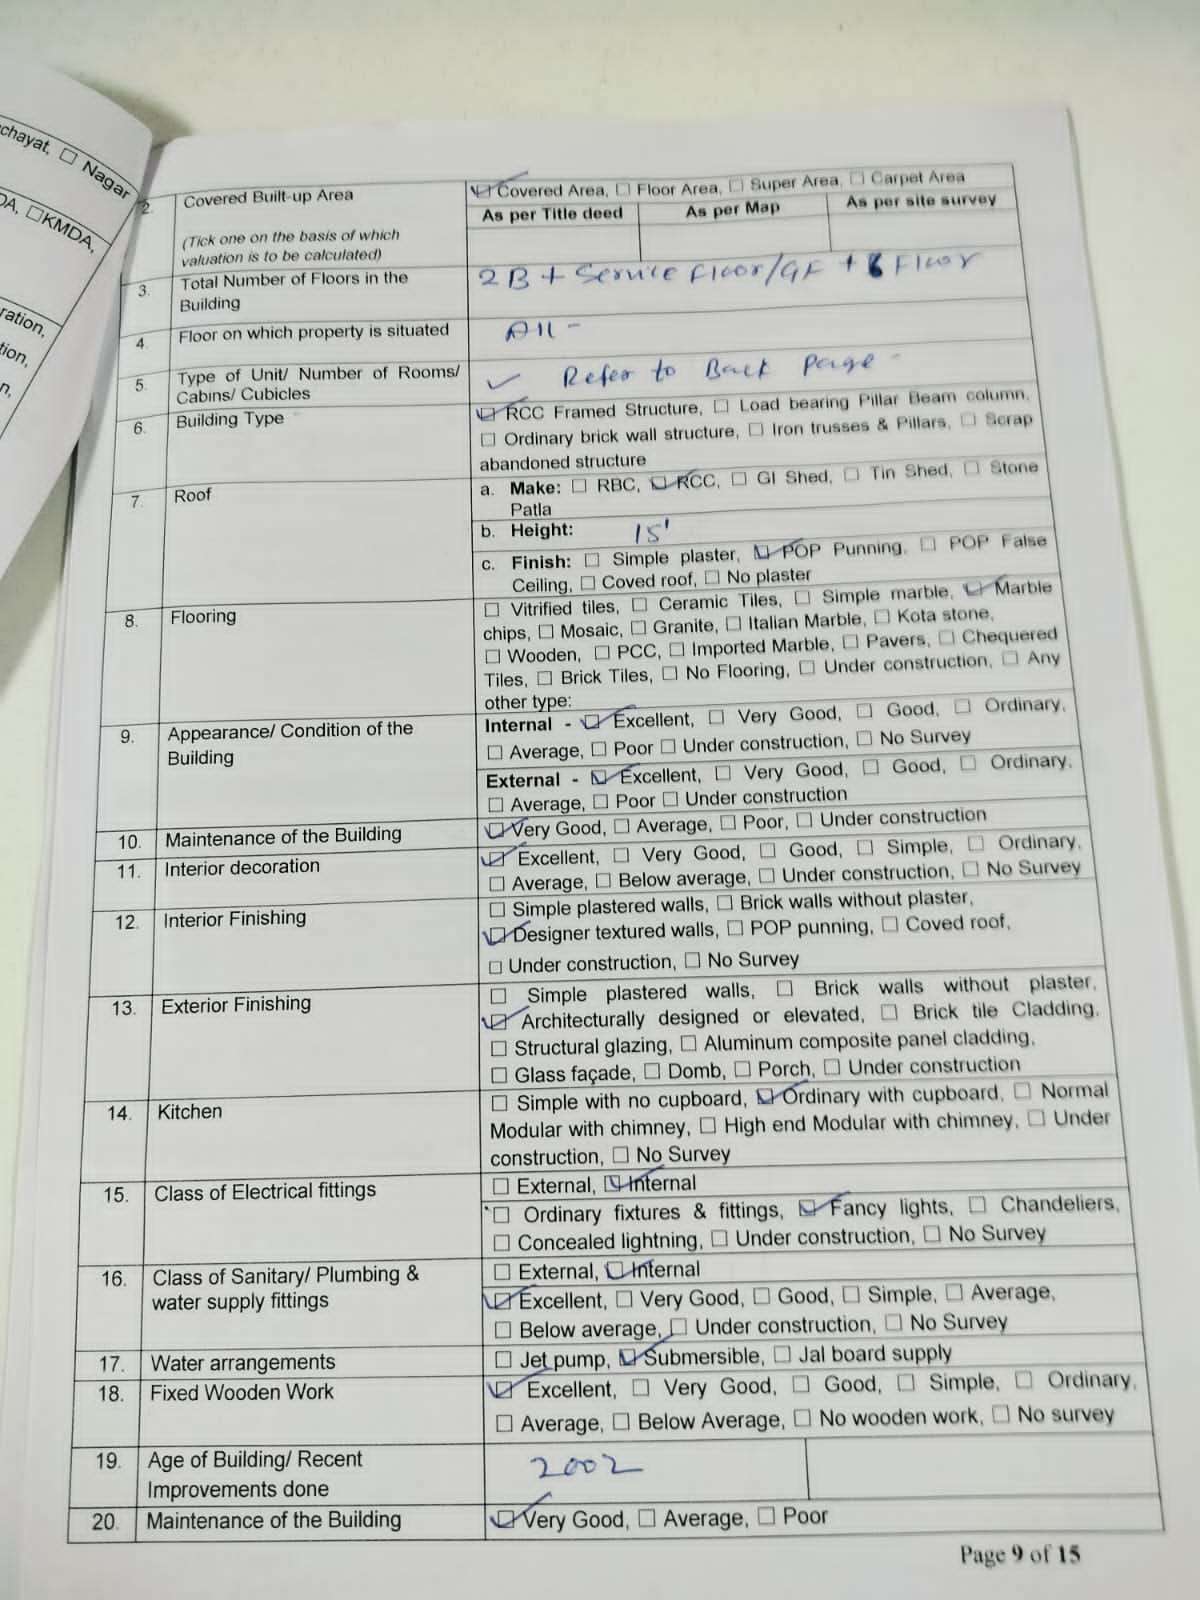 chayat, ☐ Nagar
DA, ☐KMDA,
ration,
tion,
n,
2. Covered Built-up Area ☑ Covered Area, ☐ Floor Area, ☐ Super Area, ☐ Carpet Area
As per Title deed As per Map As per site survey
(Tick one on the basis of which
valuation is to be calculated)
3. Total Number of Floors in the 2B + Service Floor/GF + 6 Floor
Building
4. Floor on which property is situated All -
5. Type of Unit/ Number of Rooms/ ✓ Refer to Back Page -
Cabins/ Cubicles
6. Building Type ☑ RCC Framed Structure, ☐ Load bearing Pillar Beam column,
☐ Ordinary brick wall structure, ☐ Iron trusses & Pillars, ☐ Scrap
abandoned structure
7. Roof a. Make: ☐ RBC, ☑ RCC, ☐ GI Shed, ☐ Tin Shed, ☐ Stone
Patla
b. Height: 15'
c. Finish: ☐ Simple plaster, ☑ POP Punning, ☐ POP False
Ceiling, ☐ Coved roof, ☐ No plaster
8. Flooring ☐ Vitrified tiles, ☐ Ceramic Tiles, ☐ Simple marble, ☑ Marble
chips, ☐ Mosaic, ☐ Granite, ☐ Italian Marble, ☐ Kota stone,
☐ Wooden, ☐ PCC, ☐ Imported Marble, ☐ Pavers, ☐ Chequered
Tiles, ☐ Brick Tiles, ☐ No Flooring, ☐ Under construction, ☐ Any
other type:
9. Appearance/ Condition of the Internal - ☑ Excellent, ☐ Very Good, ☐ Good, ☐ Ordinary,
Building ☐ Average, ☐ Poor ☐ Under construction, ☐ No Survey
External - ☑ Excellent, ☐ Very Good, ☐ Good, ☐ Ordinary,
☐ Average, ☐ Poor ☐ Under construction
10. Maintenance of the Building ☑ Very Good, ☐ Average, ☐ Poor, ☐ Under construction
11. Interior decoration ☑ Excellent, ☐ Very Good, ☐ Good, ☐ Simple, ☐ Ordinary,
☐ Average, ☐ Below average, ☐ Under construction, ☐ No Survey
12. Interior Finishing ☐ Simple plastered walls, ☐ Brick walls without plaster,
☑ Designer textured walls, ☐ POP punning, ☐ Coved roof,
☐ Under construction, ☐ No Survey
13. Exterior Finishing ☐ Simple plastered walls, ☐ Brick walls without plaster,
☑ Architecturally designed or elevated, ☐ Brick tile Cladding,
☐ Structural glazing, ☐ Aluminum composite panel cladding,
☐ Glass façade, ☐ Domb, ☐ Porch, ☐ Under construction
14. Kitchen ☐ Simple with no cupboard, ☑ Ordinary with cupboard, ☐ Normal
Modular with chimney, ☐ High end Modular with chimney, ☐ Under
construction, ☐ No Survey
15. Class of Electrical fittings ☐ External, ☑ Internal
☐ Ordinary fixtures & fittings, ☑ Fancy lights, ☐ Chandeliers,
☐ Concealed lightning, ☐ Under construction, ☐ No Survey
16. Class of Sanitary/ Plumbing & ☐ External, ☑ Internal
water supply fittings ☑ Excellent, ☐ Very Good, ☐ Good, ☐ Simple, ☐ Average,
☐ Below average, ☐ Under construction, ☐ No Survey
17. Water arrangements ☐ Jet pump, ☑ Submersible, ☐ Jal board supply
18. Fixed Wooden Work ☑ Excellent, ☐ Very Good, ☐ Good, ☐ Simple, ☐ Ordinary,
☐ Average, ☐ Below Average, ☐ No wooden work, ☐ No survey
19. Age of Building/ Recent 2002
Improvements done
20. Maintenance of the Building ☑ Very Good, ☐ Average, ☐ Poor
Page 9 of 15